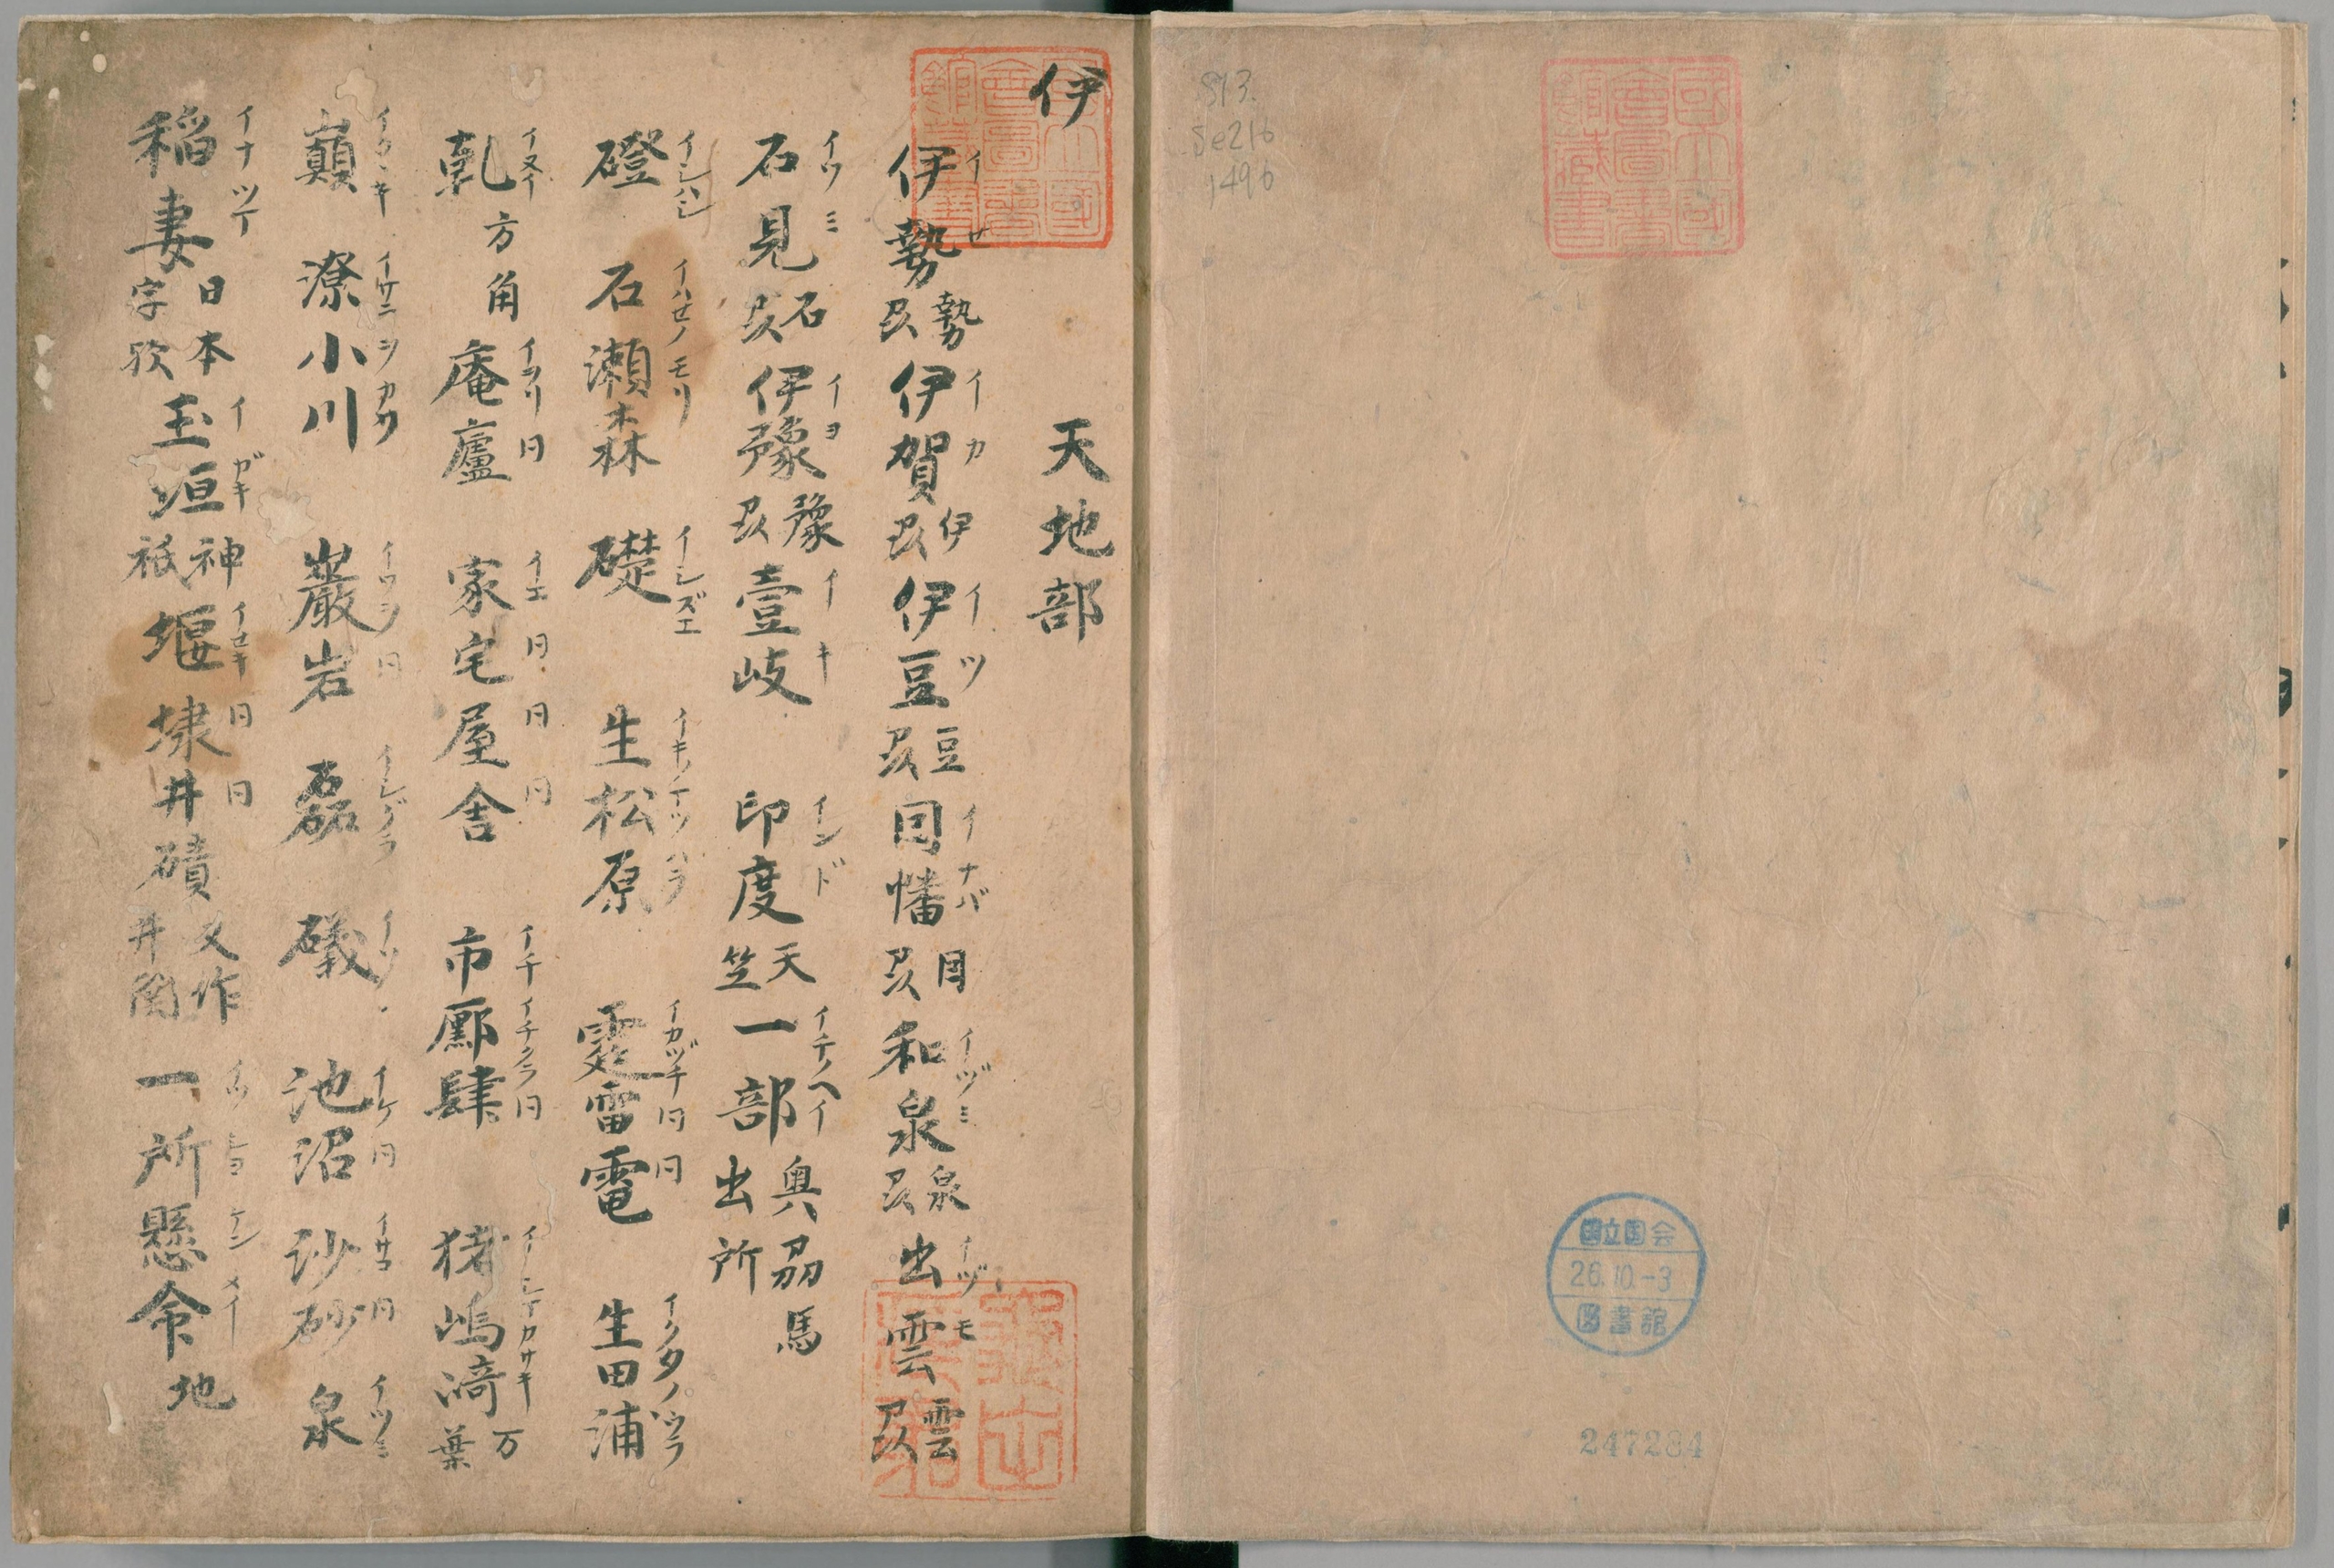 S13.
Se216
1496
國立國
會圖書
館藏書
国立国会
26.10.-3
図書館
247284
伊 天地部
伊勢 勢州 伊賀 伊州 伊豆 豆州 因幡 因州 和泉 泉州 出雲 雲州
イセ イカ イツ イナバ イヅミ イヅモ
石見 石州 伊豫 豫州 壹岐 印度 天竺 一部 奥州馬出所
イワミ イヨ イキ インド イチノヘイ
磴 石瀬森 礎 生松原 霆雷電 生田浦
イシハシ イハセノモリ イシズエ イキノマツハラ イカヅチ 同 同 イクタノウラ
乾 方角 庵廬 家宅屋舎 市廛肆 猪嶋﨑 万葉
イヌイ イヲリ 同 イエ 同 同 同 イチ イチクラ 同
巓 潦小川 巖岩 磊 礒 池沼 沙砂 泉
イタヽキ イサラヲカワ イワヲ 同 イシグラ イソ イケ 同 イサゴ 同 イヅミ
稲妻 日本字歟 玉垣 神祇 堰埭井磧 又作井関 一所懸命地
イナツマ イガキ イセキ 同 同 イツシヨケンメイ